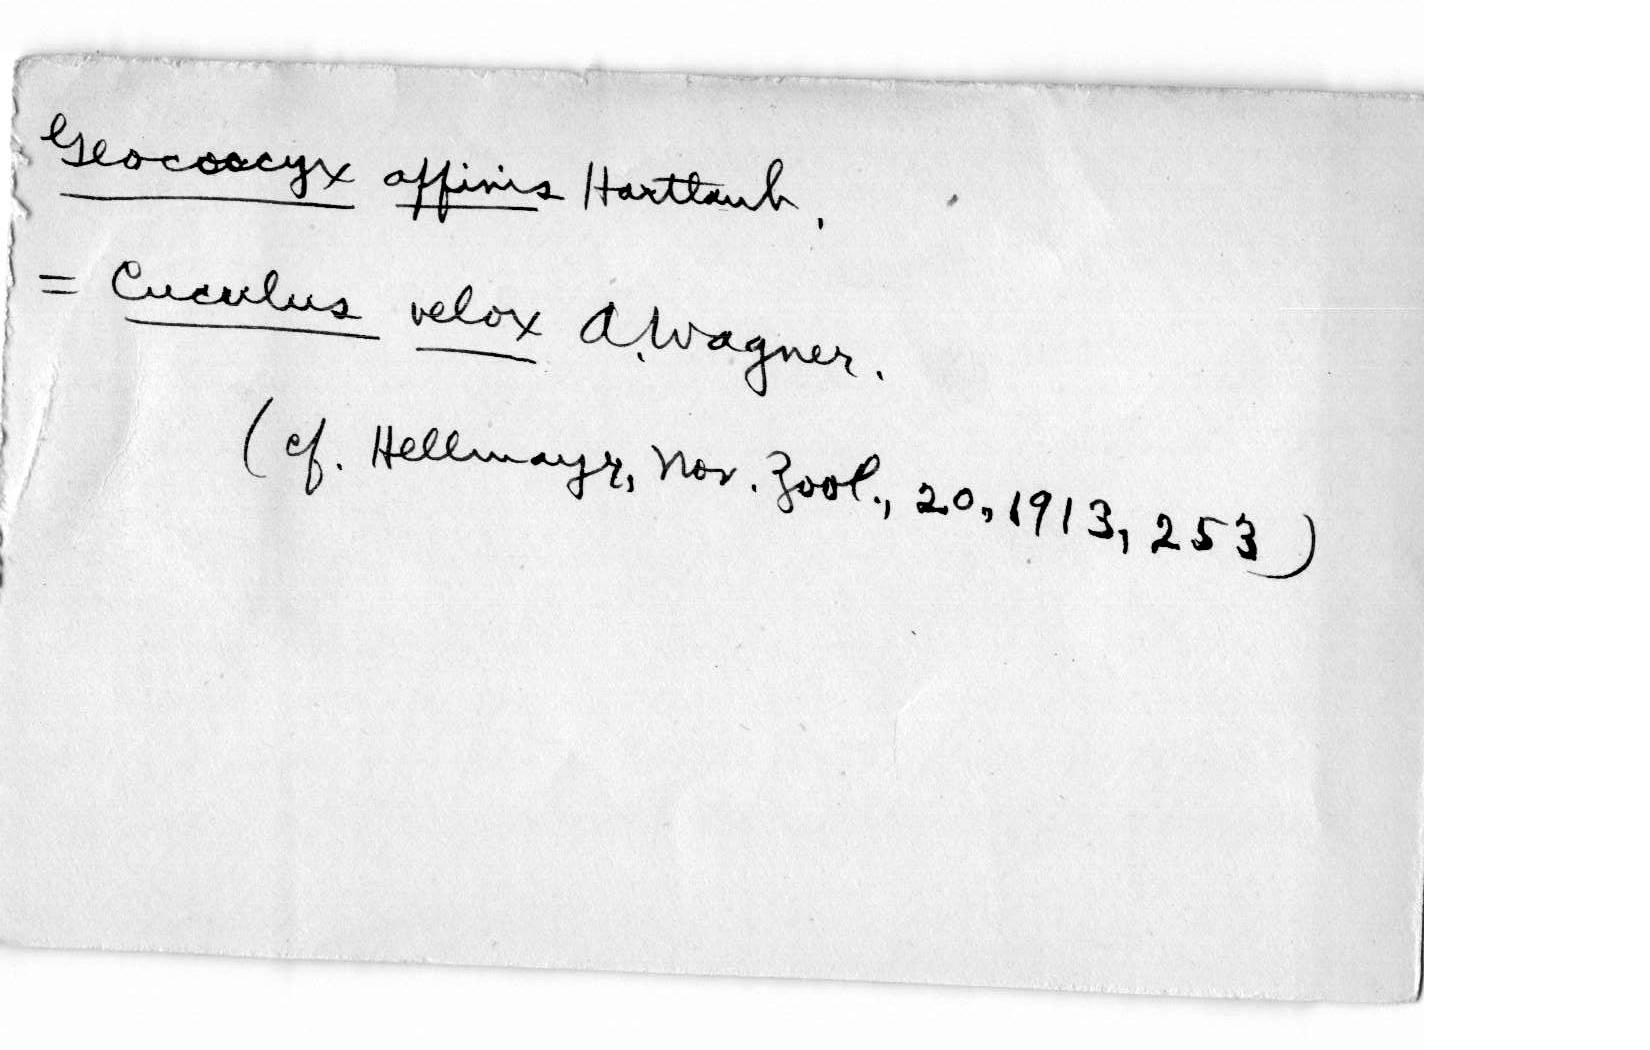 Geococcyx affinis Hartlaub.
= Cuculus velox A. Wagner.
(cf. Hellmayr, Nov. Zool., 20, 1913, 253)